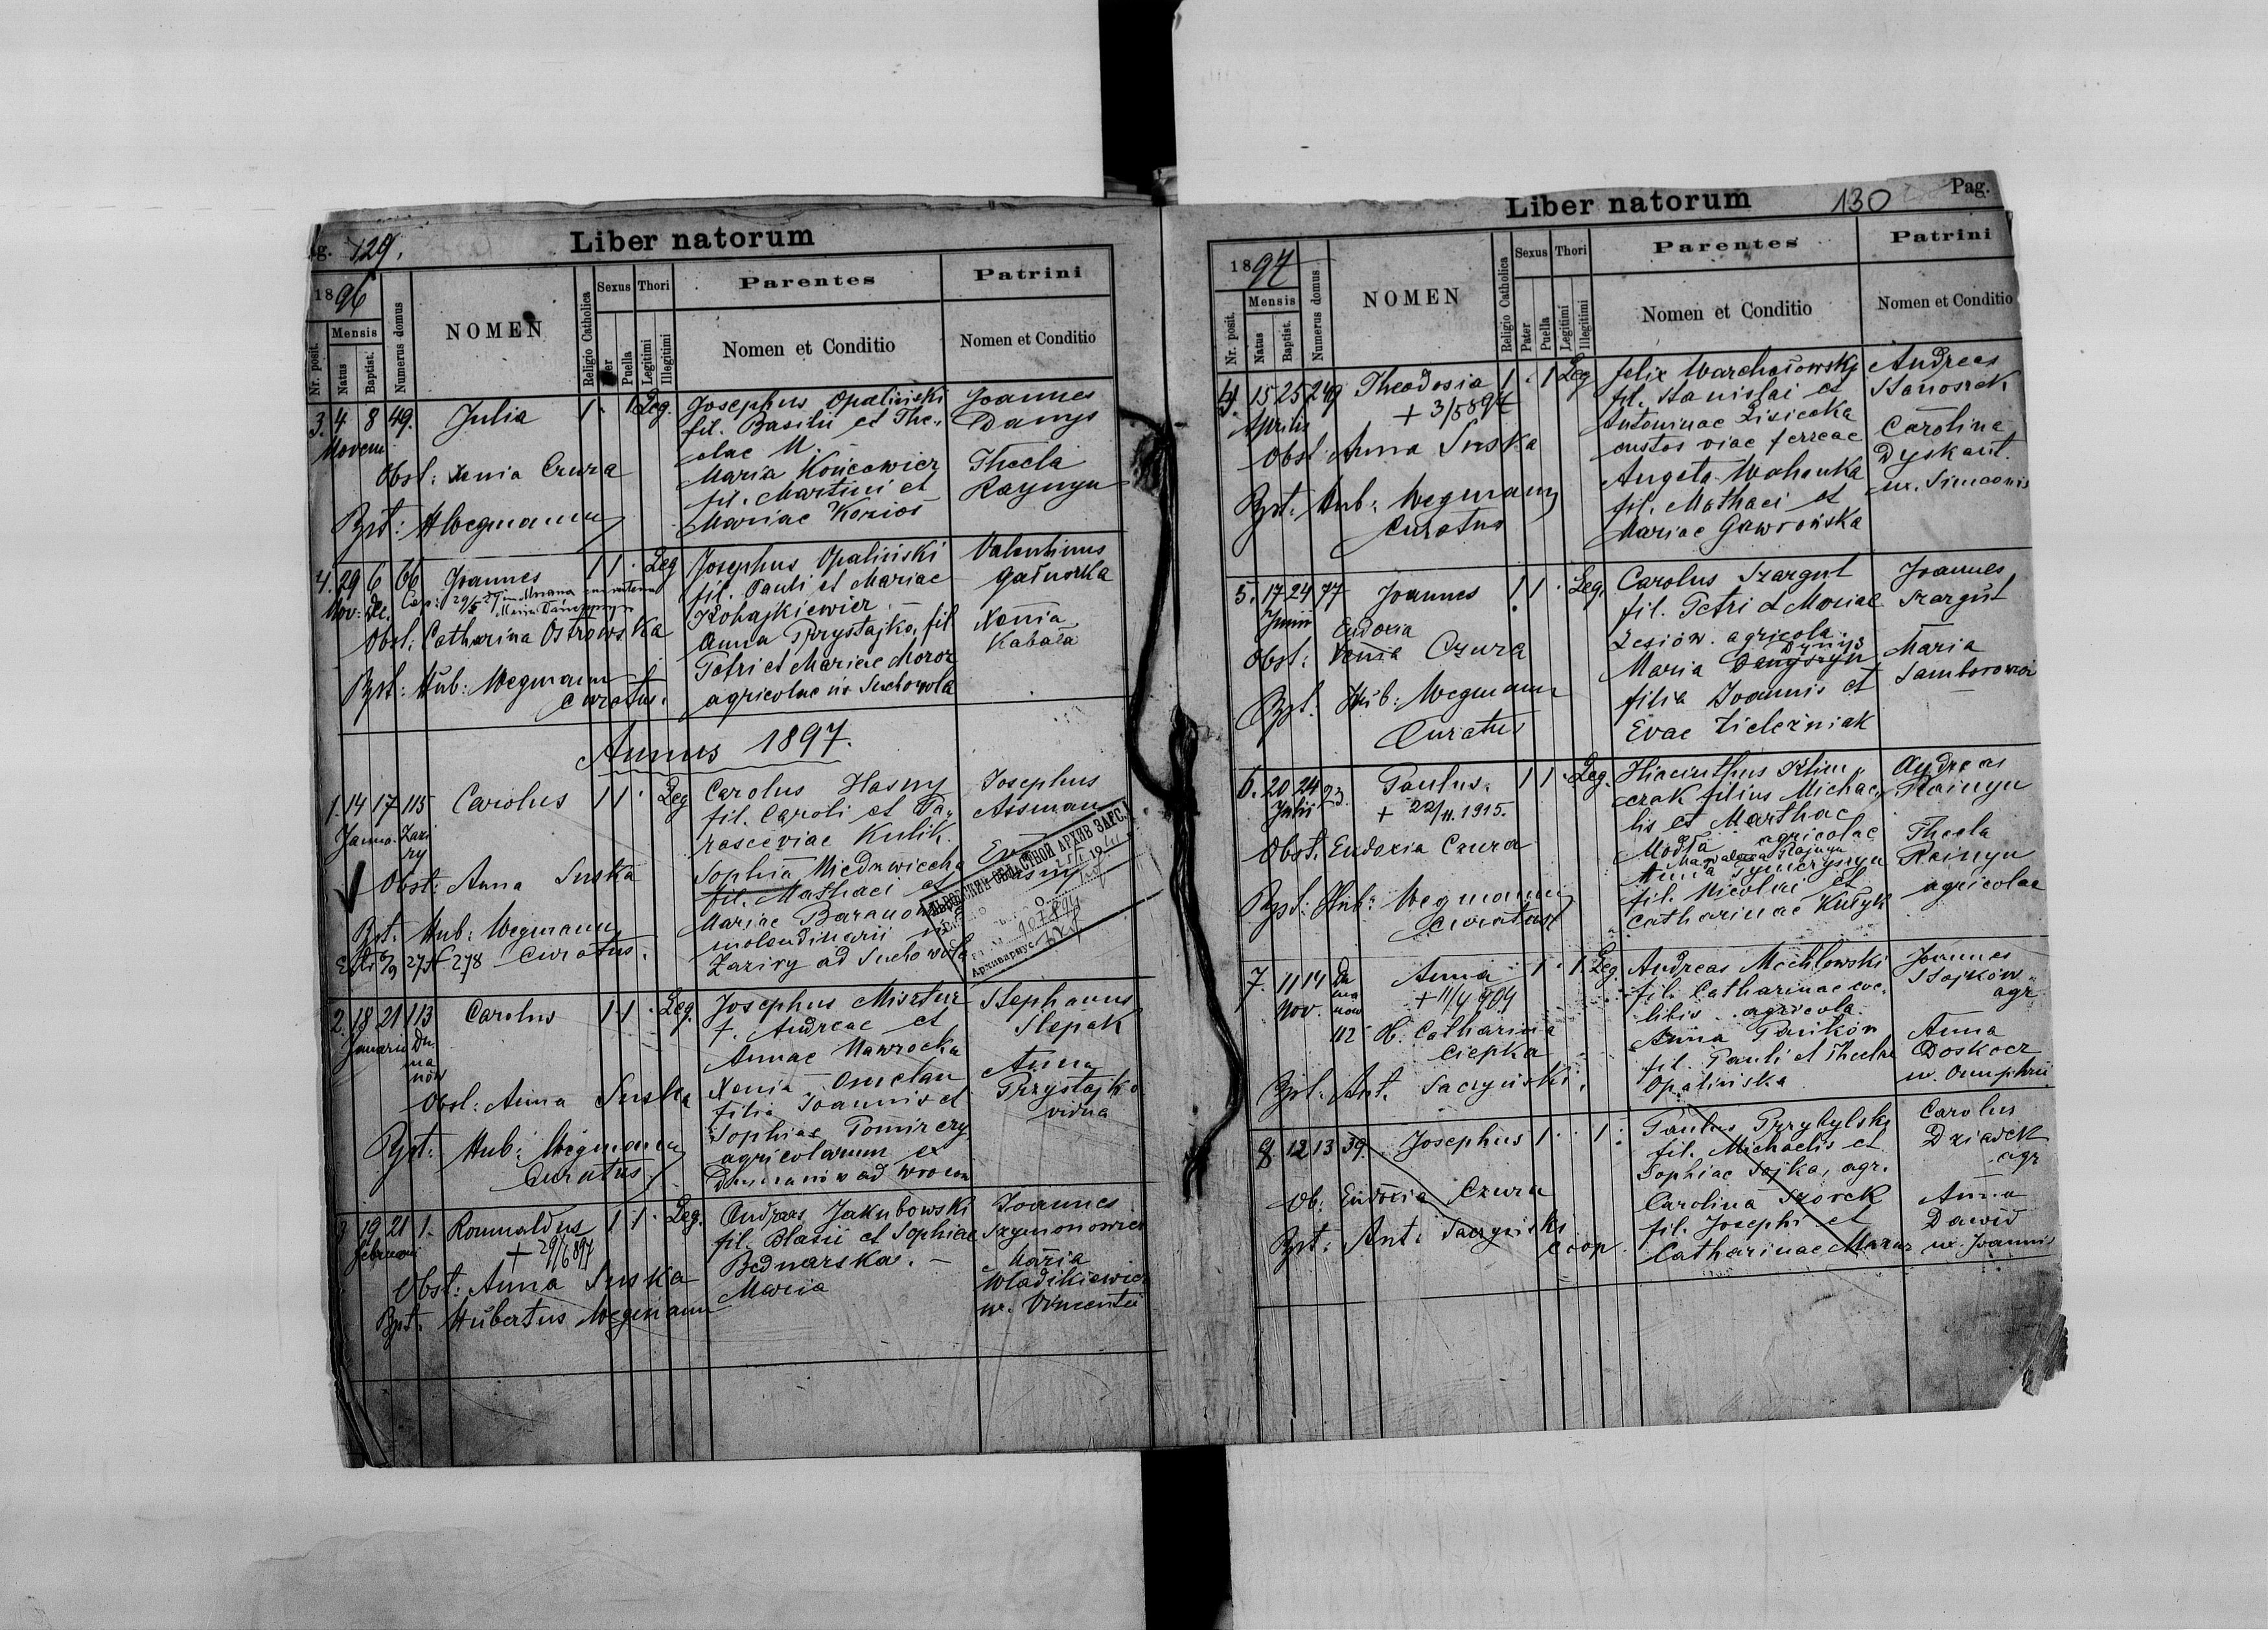 129.
Liber natorum
1896
Nr. posit.
Mensis
Natus
Baptist.
Numerus domus
NOMEN
Religio Catholica
Sexus
Puella
Thori
Legitimi
Illegitimi
Parentes
Nomen et Conditio
Patrini
Nomen et Conditio
3. 4 8 49. Julia 1 · 1 Leg.
Novem
Obst: Xenia Czura
Bpt: HWegmann
Josephus Opaliński
fil. Basilii et The„
clae M.
Maria Końcewicz
fil. Martini et
Mariae Kozioł
Joannes
Danys
Thecla
Raynyn
4. 29 6 66 Joannes 1 1 · Leg
Nov: De.
Obst: Catharina Ostrowska
Bpt: Hub: Wegmann
Curatus.
Josephus Opaliński
fil. Pauli et Mariae
Anna Przystajko, fil
Petri et Mariae Moroz
agricolae in Suchowola
Valentinus
Xenia
Kabala
Annus 1897.
1. 14 17 115 Carolus 1 1 · Leg
Janna. Zazi
ry
Obst: Anna Suska
Bpt. Hub: Wegmann
Curatus.
Carolus Hasny
fil. Caroli et Pa„
rasceviae Kulik.
Sophia Niedzwiecka
fil. Mathaei et
Mariae
molendinarii
Zaziry ad Suchowola
Josephus
Assman
ЛЬВОВСКИЙ ОБЛАСТНОЙ АРХИВ ЗАГС
Архивариус
2. 18 21 113 Carolus 1 1 · Leg.
Januarii Du
ma
now
Obst: Anna Suska
Bpt: Hub: Wegmann
Curatus
Josephus Misztur
f. Andreae et
Annae Nawrocka
Xenia Ometan
filia Joannis et
Sophiae
agricolarum ex
ad Wrocow
Stephanus
Slepak
Anna
Przystajko
vidua
3 19 21 1. Romualdus 1 1 · Leg.
Februarii
+ 29/6 897
Obst: Anna Suska
Bpt. Hubertus Wegmann
Andreas Jakubowski
fil. Blasii et Sophiae
Bednarska. —
Maria
Joannes
Szymonowicz
Maria
Wladikiewicz
ux. Vincentii
Liber natorum
130
Pag.
1897
Nr. posit.
Mensis
Natus
Baptist.
Numerus domus
NOMEN
Religio Catholica
Sexus
Puer
Puella
Thori
Legitimi
Illegitimi
Parentes
Nomen et Conditio
Patrini
Nomen et Conditio
4. 15 25 249 Theodosia 1 · 1 Leg
Aprilis
+ 3/5 897
Obst Anna Suska
Bpt. Hub: Wegmann
Curatus
Felix Warchałowski
fil. Stanislai et
Antoninae Lisiecka
custos viae ferreae
Angela
fil. Mathaei et
Mariae Gawrońska
Andreas
Carolina
Dyskant.
ux. Simeonis
5. 17 24 77 Joannes 1 1 · Leg.
Junii
Eudoxia
Obst: Xenia Czura
Bpt. Hub: Wegmann
Curatus
Carolus Szargut
fil. Petri et Mariae
Lesiów. agricola.
Danys
Maria
filia Joannis et
Evae Zieleźniak
Joannes
Szargut
Maria
6. 20 24 23. Paulus. 1 1 · Leg.
Julii
+ 22/11. 1915.
Obst. Eudoxia Czura
Bpt: Hub: Wegmann
Curatus
Hiacinthus Klim„
czak filius Michae„
lis et Marthae
Modla agricolae
Anna
fil. Nicolai et
Catharinae Kułyk
Andreas
Rainyn
Thecla
Rainyn
agricolae
7. 11 14 Du Anna 1 · 1 Leg.
Nov. ma
now
112
+ 11/4 904
O. Catharina
Ciepka
Bpt: Ant. Saczyński.
Andreas Michlowski
fil. Catharinae coe„
libis. agricola.
Anna
fil. Pauli et Theclae
Opalińska
Joannes
Stojków„
agr.
Anna
Doskocz
ux. Onuphrii
8. 12 13 39. Josephus 1 · 1
Ob. Eudoxia Czura
Bpt: Ant: Saczyński
coop.
Paulus Przybylski
fil. Michaelis et
Sophiae Sojka, agr.
Carolina
fil. Josephi et
Catharinae Mazur
Carolus
Dziadek
agr
Anna
Dawid
ux. Joannis